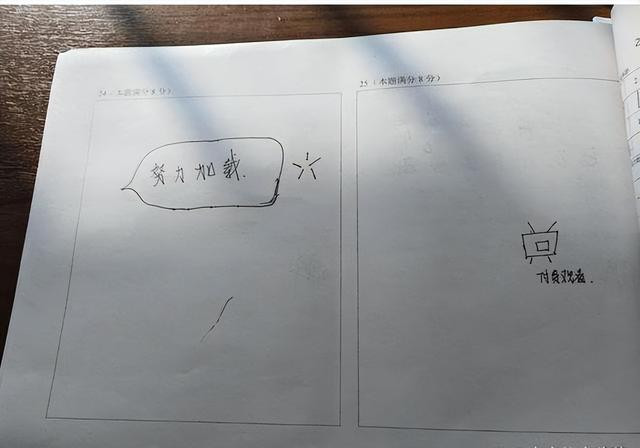 24（本题满分8分）
25（本题满分8分）
努力加载.
付费观看.